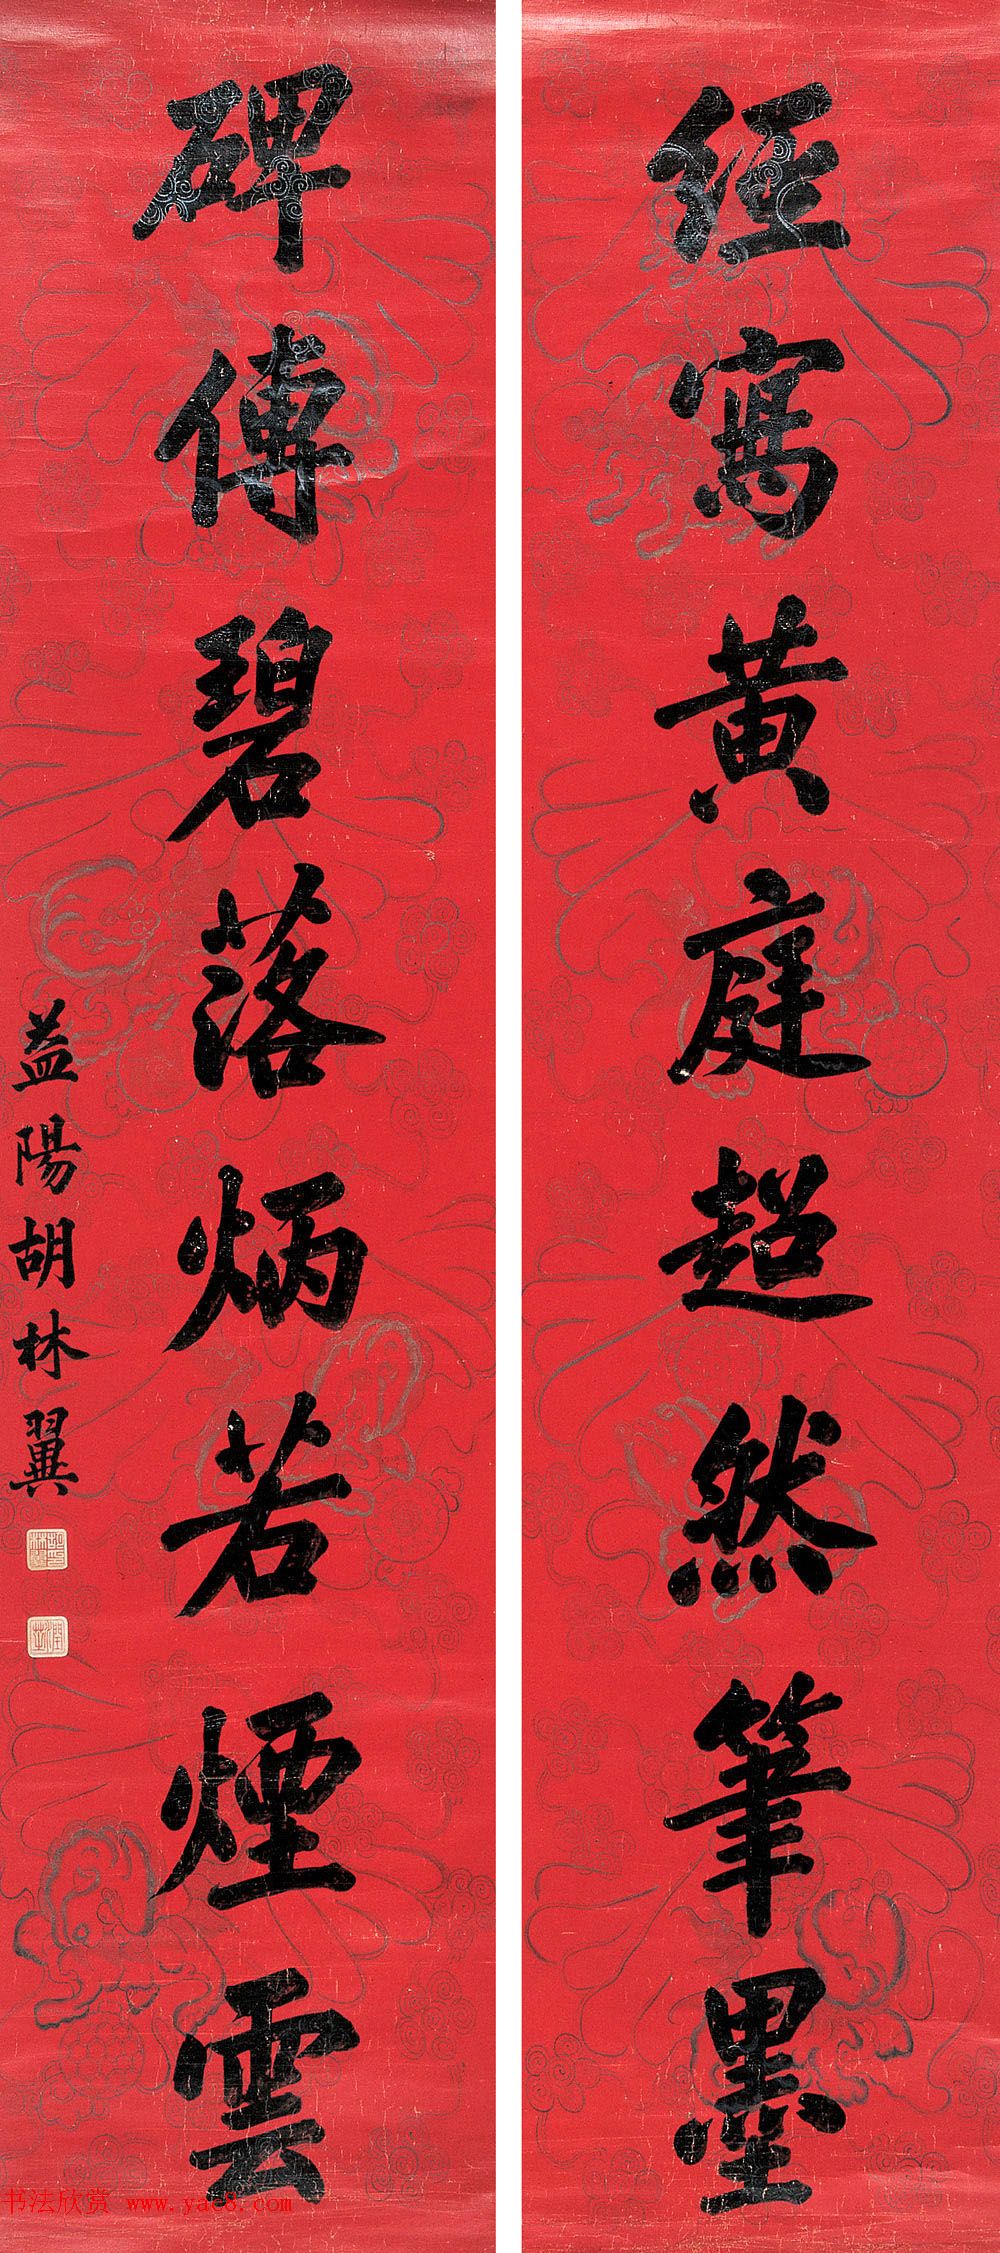 經寫黄庭超然筆墨
碑傳碧落炳若煙雲
益陽胡林翼
书法欣赏 www.yac8.com